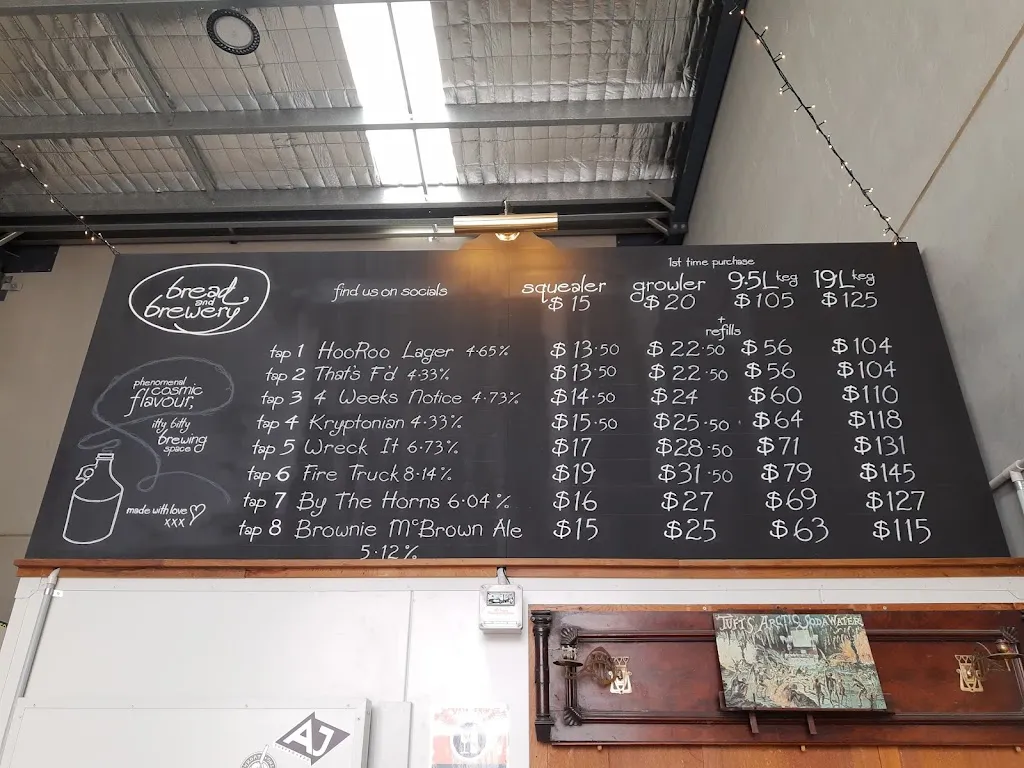 bread
and
brewery
find us on socials
1st time purchase
squealer growler 9.5L keg 19L keg
$15 $20 $105 $125
+
refills
tap 1 HooRoo Lager 4.65% $13.50 $22.50 $56 $104
tap 2 That's F'd 4.33% $13.50 $22.50 $56 $104
tap 3 4 Weeks Notice 4.73% $14.50 $24 $60 $110
tap 4 Kryptonian 4.33% $15.50 $25.50 $64 $118
tap 5 Wreck It 6.73% $17 $28.50 $71 $131
tap 6 Fire Truck 8.14% $19 $31.50 $79 $145
tap 7 By The Horns 6.04% $16 $27 $69 $127
tap 8 Brownie McBrown Ale $15 $25 $63 $115
5.12%
phenomenal
cosmic
flavour;
itty bitty
brewing
space
made with love
xxx
TUFTS ARCTIC SODA WATER
AJ